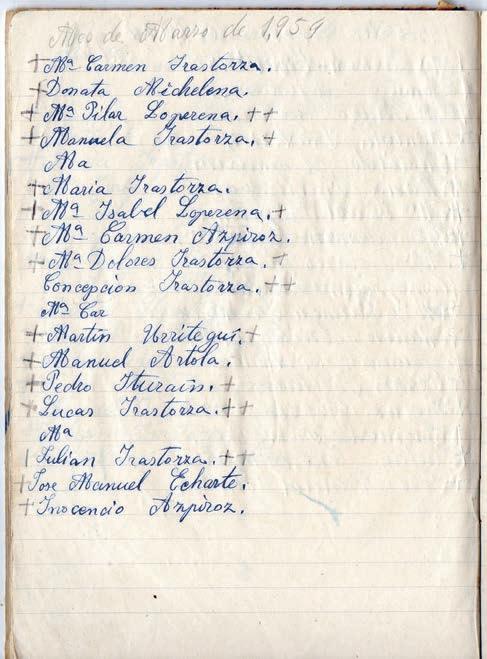 Mes de Marzo de 1,959
+ Mª Carmen Irastorza.
+ Donata Michelena.
+ Mª Pilar Loperena. ++
+ Manuela Irastorza. +
Ma
+ Maria Irastorza.
+ Mª Isabel Loperena. +
+ Mª Carmen Azpiroz.
+ Mª Dolores Irastorza. +
Concepcion Irastorza. ++
Mª Car
+ Martín Urritegui. +
+ Manuel Artola.
+ Pedro Ituraín. +
+ Lucas Irastorza. ++
Mª
| Julian Irastorza. ++
+ Jose Manuel Echarte.
+ Inocencio Azpiroz.